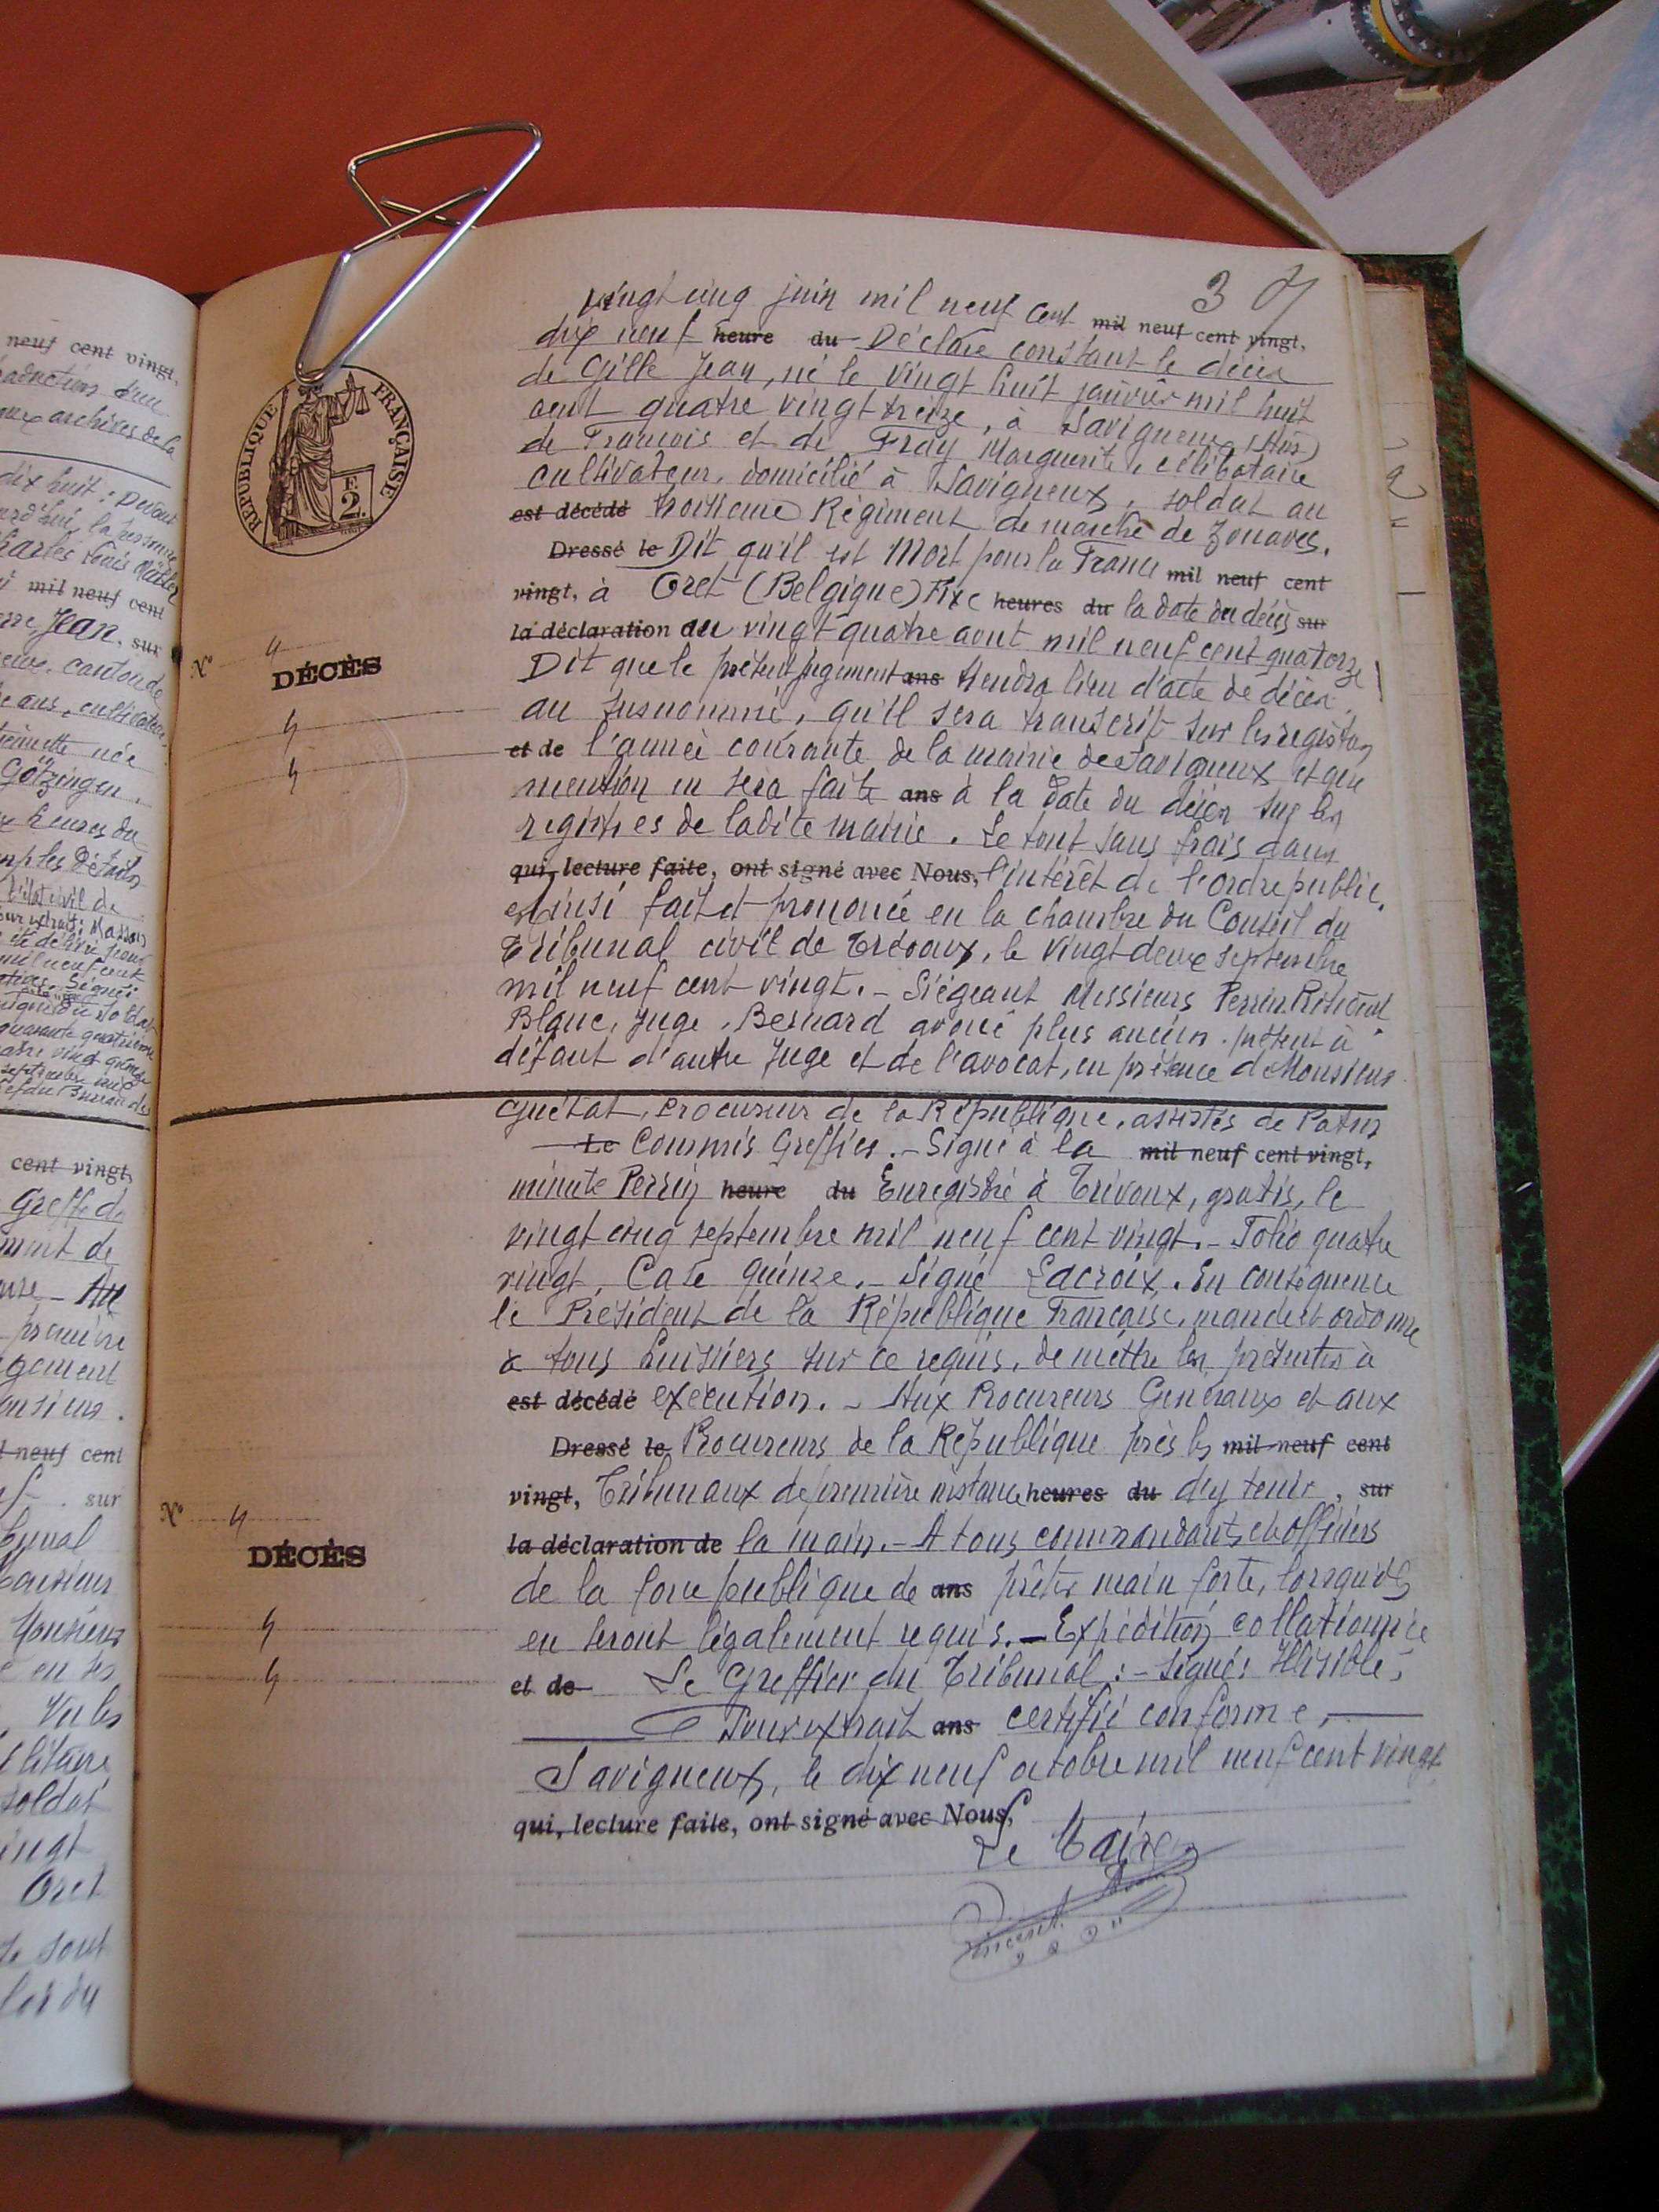 3
vingt cinq juin mil neuf cent mil neuf cent vingt,
dix neuf heure du Déclare constant le décès
de Gille Jean, né le vingt huit janvier mil huit
cent quatre vingt treize, à Savigneux (Ain)
de François et de Fray Marguerite, célibataire
cultivateur, domicilié à Savigneux, soldat au
est décédé troisième Régiment de marche de Zouaves.
Dressé le Dit qu'il est Mort pour la France mil neuf cent
vingt, à Oret (Belgique) Fixe heures du la date du décès sur
la déclaration au vingt quatre aout mil neuf cent quatorze
Dit que le présent jugement ans tiendra lieu d'acte de décès
au susnommé, qu'il sera transcrit sur les registres
et de l'année courante de la mairie de Savigneux et que
mention en sera faite ans à la date du décès sur les
registres de ladite mairie. Le tout sans frais dans
qui, lecture faite, ont signé avec Nous, l'intérêt de l'ordre public.
Ainsi fait et prononcé en la chambre du Conseil du
Tribunal civil de Trévoux, le vingt deux septembre
mil neuf cent vingt. - Siégeant Messieurs Perrin Président
Blanc, Juge, Bernard avoué plus ancien présent à
défaut d'autre Juge et de l'avocat, en présence de Monsieur
Guétat, Procureur de la République, assistés de
Le Commis Greffier. - Signé à la mil neuf cent vingt,
minute Perrin heure du Enregistré à Trévoux, gratis, le
vingt cinq septembre mil neuf cent vingt. - Folio quatre
vingt, Case quinze. - Signé Lacroix. En conséquence
le Président de la République Française, mande et ordonne
à tous huissiers sur ce requis, de mettre les présentes à
est décédé exécution. - Aux Procureurs Généraux et aux
Dressé le Procureurs de la République près les mil neuf cent
vingt, Tribunaux de première instance heures du d'y tenir, sur
la déclaration de la main. - A tous commandants et officiers
de la force publique de ans prêter main forte, lorsqu'ils
en seront légalement requis. - Expédition collationnée
et de Le Greffier du Tribunal : - signé: Illisible,
Pour extrait ans certifié conforme,
Savigneux, le dix neuf octobre mil neuf cent vingt
qui, lecture faite, ont signé avec Nous,
Le Maire
RÉPUBLIQUE FRANÇAISE
2
N°
DÉCÈS
N°
DÉCÈS
neuf cent vingt,
archives de la
dix huit : Devant
mil neuf cent
Jean. sur
canton de
ans, cultivateur
Götzingen.
heures du
cent vingt,
Greffe du
première
neuf cent
sur
Oret